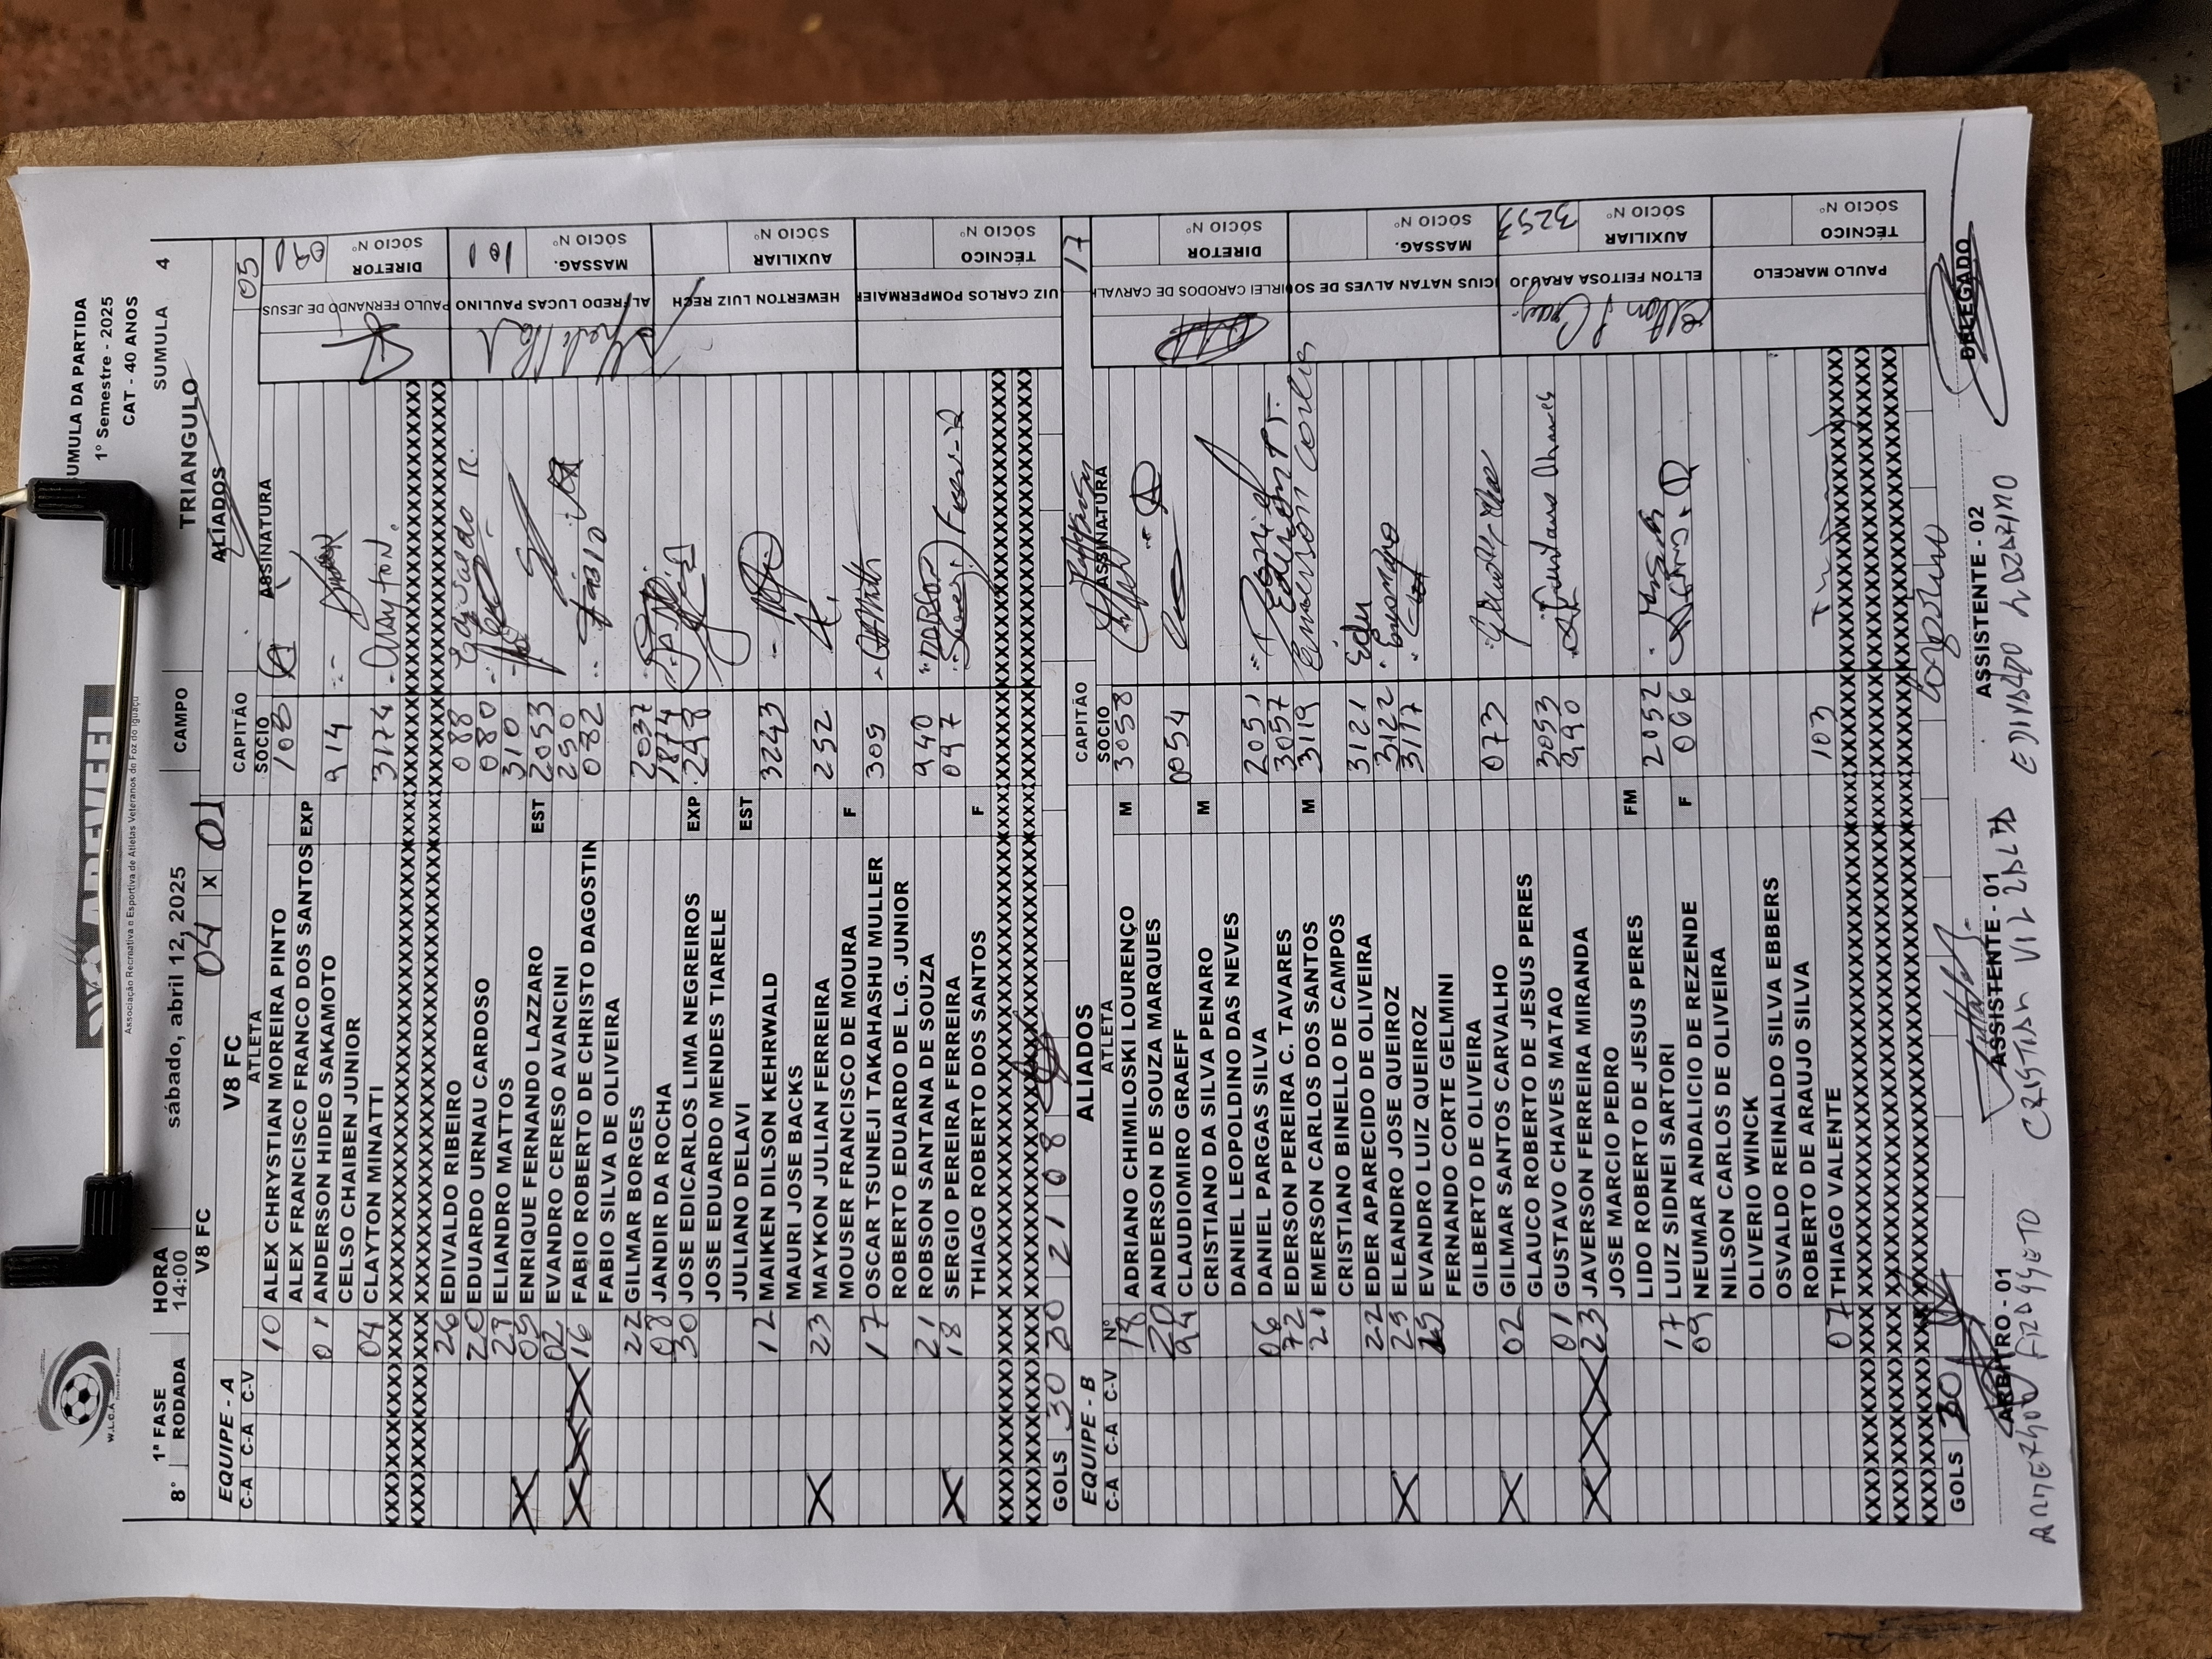 W.L.C.A
AREVEFI
Associação Recreativa e Esportiva de Atletas Veteranos de Foz do Iguaçu
UMULA DA PARTIDA
1º Semestre - 2025
CAT - 40 ANOS
1ª FASE HORA sábado, abril 12, 2025 CAMPO SUMULA 4
8° RODADA 14:00 TRIANGULO
V8 FC 04 X 01 ALIADOS
EQUIPE - A V8 FC CAPITÃO 05
C-A C-A C-V ATLETA SOCIO ASSINATURA
10 ALEX CHRYSTIAN MOREIRA PINTO 108
ALEX FRANCISCO FRANCO DOS SANTOS EXP
01 ANDERSON HIDEO SAKAMOTO 914
CELSO CHAIBEN JUNIOR
04 CLAYTON MINATTI 3174 Clayton.
26 EDIVALDO RIBEIRO 088 Edivaldo R.
20 EDUARDO URNAU CARDOSO 080
ELIANDRO MATTOS 310
05 ENRIQUE FERNANDO LAZZARO EST 2053
02 EVANDRO CERESO AVANCINI 250
16 FABIO ROBERTO DE CHRISTO DAGOSTIN 082 Fabio
FABIO SILVA DE OLIVEIRA
22 GILMAR BORGES 2037
08 JANDIR DA ROCHA 1874
30 JOSE EDICARLOS LIMA NEGREIROS EXP 298
JOSE EDUARDO MENDES TIARELE
JULIANO DELAVI EST
12 MAIKEN DILSON KEHRWALD 3243
MAURI JOSE BACKS
23 MAYKON JULIAN FERREIRA 252
MOUSER FRANCISCO DE MOURA F
17 OSCAR TSUNEJI TAKAHASHU MULLER 309
ROBERTO EDUARDO DE L.G. JUNIOR
21 ROBSON SANTANA DE SOUZA 940
18 SERGIO PEREIRA FERREIRA 097
THIAGO ROBERTO DOS SANTOS F
GOLS 30 30 21 08
PAULO FERNANDO DE JESUS DIRETOR SÓCIO Nº 090
ALFREDO LUCAS PAULINO MASSAG. SÓCIO Nº 101
HEWERTON LUIZ RECH AUXILIAR SÓCIO Nº
UIZ CARLOS POMPERMAIER TÉCNICO SÓCIO Nº
EQUIPE - B ALIADOS CAPITÃO 17
C-A C-A C-V Nº ATLETA SOCIO ASSINATURA
18 ADRIANO CHIMILOSKI LOURENÇO M 3058
20 ANDERSON DE SOUZA MARQUES
94 CLAUDIOMIRO GRAEFF 0054
CRISTIANO DA SILVA PENARO M
DANIEL LEOPOLDINO DAS NEVES
06 DANIEL PARGAS SILVA 2051 Daniel
72 EDERSON PEREIRA C. TAVARES 3057 Ederson P.T.
21 EMERSON CARLOS DOS SANTOS M 3119 Emerson Carlos
CRISTIANO BINELLO DE CAMPOS
22 EDER APARECIDO DE OLIVEIRA 3121 Eder
23 ELEANDRO JOSE QUEIROZ 3122
EVANDRO LUIZ QUEIROZ 3117
FERNANDO CORTE GELMINI
GILBERTO DE OLIVEIRA
02 GILMAR SANTOS CARVALHO 073
GLAUCO ROBERTO DE JESUS PERES
01 GUSTAVO CHAVES MATAO 3053
23 JAVERSON FERREIRA MIRANDA 990
JOSE MARCIO PEDRO
LIDO ROBERTO DE JESUS PERES FM
17 LUIZ SIDNEI SARTORI 2052
09 NEUMAR ANDALICIO DE REZENDE F 066
NILSON CARLOS DE OLIVEIRA
OLIVERIO WINCK
OSVALDO REINALDO SILVA EBBERS
ROBERTO DE ARAUJO SILVA
07 THIAGO VALENTE 103
GOLS 30
IRLEI CARODOS DE CARVALH DIRETOR SÓCIO Nº
ICIUS NATAN ALVES DE SO MASSAG. SÓCIO Nº
ELTON FEITOSA ARAUJO AUXILIAR SÓCIO Nº 3253
PAULO MARCELO TÉCNICO SÓCIO Nº
ARBITRO - 01 ASSISTENTE - 01 ASSISTENTE - 02 DELEGADO